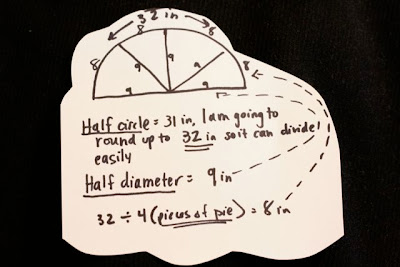 32 in
8 8
8 9 9 9 8
9 9
Half circle = 31 in, I am going to
round up to 32 in so it can divide
easily
Half diameter = 9 in
32 ÷ 4 (pieces of pie) = 8 in